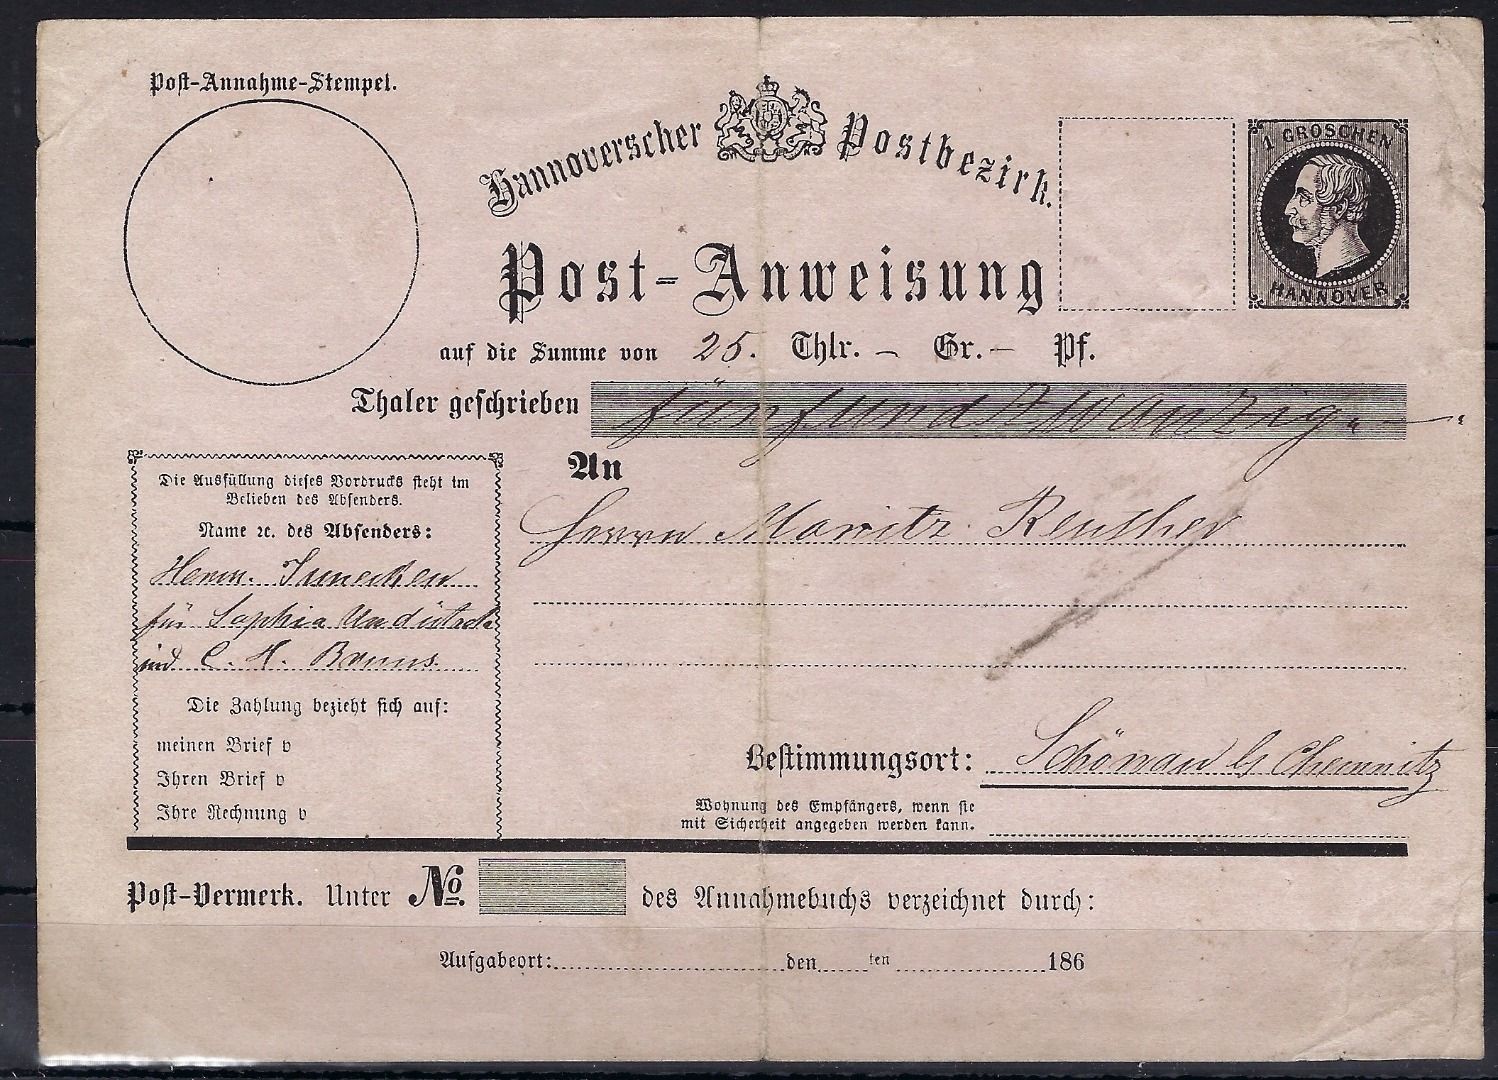 Post-Annahme-Stempel.
Hannoverscher Postbezirk.
1 GROSCHEN
HANNOVER
Post-Anweisung
auf die Summe von 25. Thlr. – Gr. – Pf.
Thaler geschrieben fünfundzwanzig
An
Herrn Moritz Reuther
Die Ausfüllung dieses Vordrucks steht im
Belieben des Absenders.
Name ꝛc. des Absenders:
Herm.
für Sophia
und C. H. Bruns
Die Zahlung bezieht sich auf:
meinen Brief v
Ihren Brief v
Ihre Rechnung v
Bestimmungsort: Schönau b Chemnitz
Wohnung des Empfängers, wenn sie
mit Sicherheit angegeben werden kann.
Post-Vermerk. Unter No. des Annahmebuchs verzeichnet durch:
Aufgabeort: den ten 186